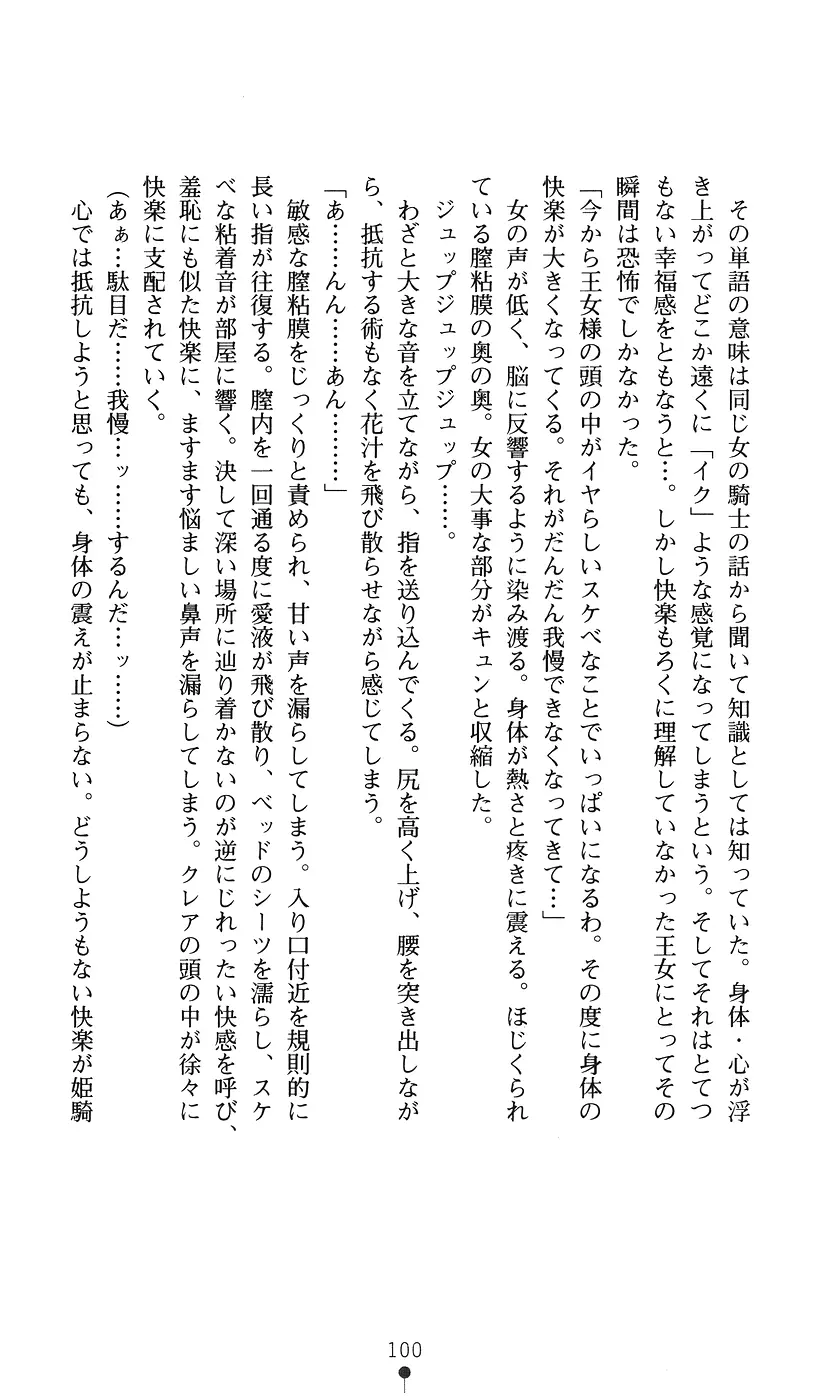 その単語の意味は同じ女の騎士の話から聞いて知識としては知っていた。身体・心が浮
き上がってどこか遠くに「イク」ような感覚になってしまうという。そしてそれはとてつ
もない幸福感をともなうと…。しかし快楽もろくに理解していなかった王女にとってその
瞬間は恐怖でしかなかった。
「今から王女様の頭の中がイヤらしいスケベなことでいっぱいになるわ。その度に身体の
快楽が大きくなってくる。それがだんだん我慢できなくなってきて…」
女の声が低く、脳に反響するように染み渡る。身体が熱さと疼きに震える。ほじくられ
ている膣粘膜の奥の奥。女の大事な部分がキュンと収縮した。
ジュップジュップジュップ……。
わざと大きな音を立てながら、指を送り込んでくる。尻を高く上げ、腰を突き出しなが
ら、抵抗する術もなく花汁を飛び散らせながら感じてしまう。
「あ……んん……あん………」
敏感な膣粘膜をじっくりと責められ、甘い声を漏らしてしまう。入り口付近を規則的に
長い指が往復する。膣内を一回通る度に愛液が飛び散り、ベッドのシーツを濡らし、スケ
べな粘着音が部屋に響く。決して深い場所に辿り着かないのが逆にじれったい快感を呼び、
羞恥にも似た快楽に、ますます悩ましい鼻声を漏らしてしまう。クレアの頭の中が徐々に
快楽に支配されていく。
(あぁ…駄目だ……我慢…ッ……するんだ…ッ……)
心では抵抗しようと思っても、身体の震えが止まらない。どうしようもない快楽が姫騎
100